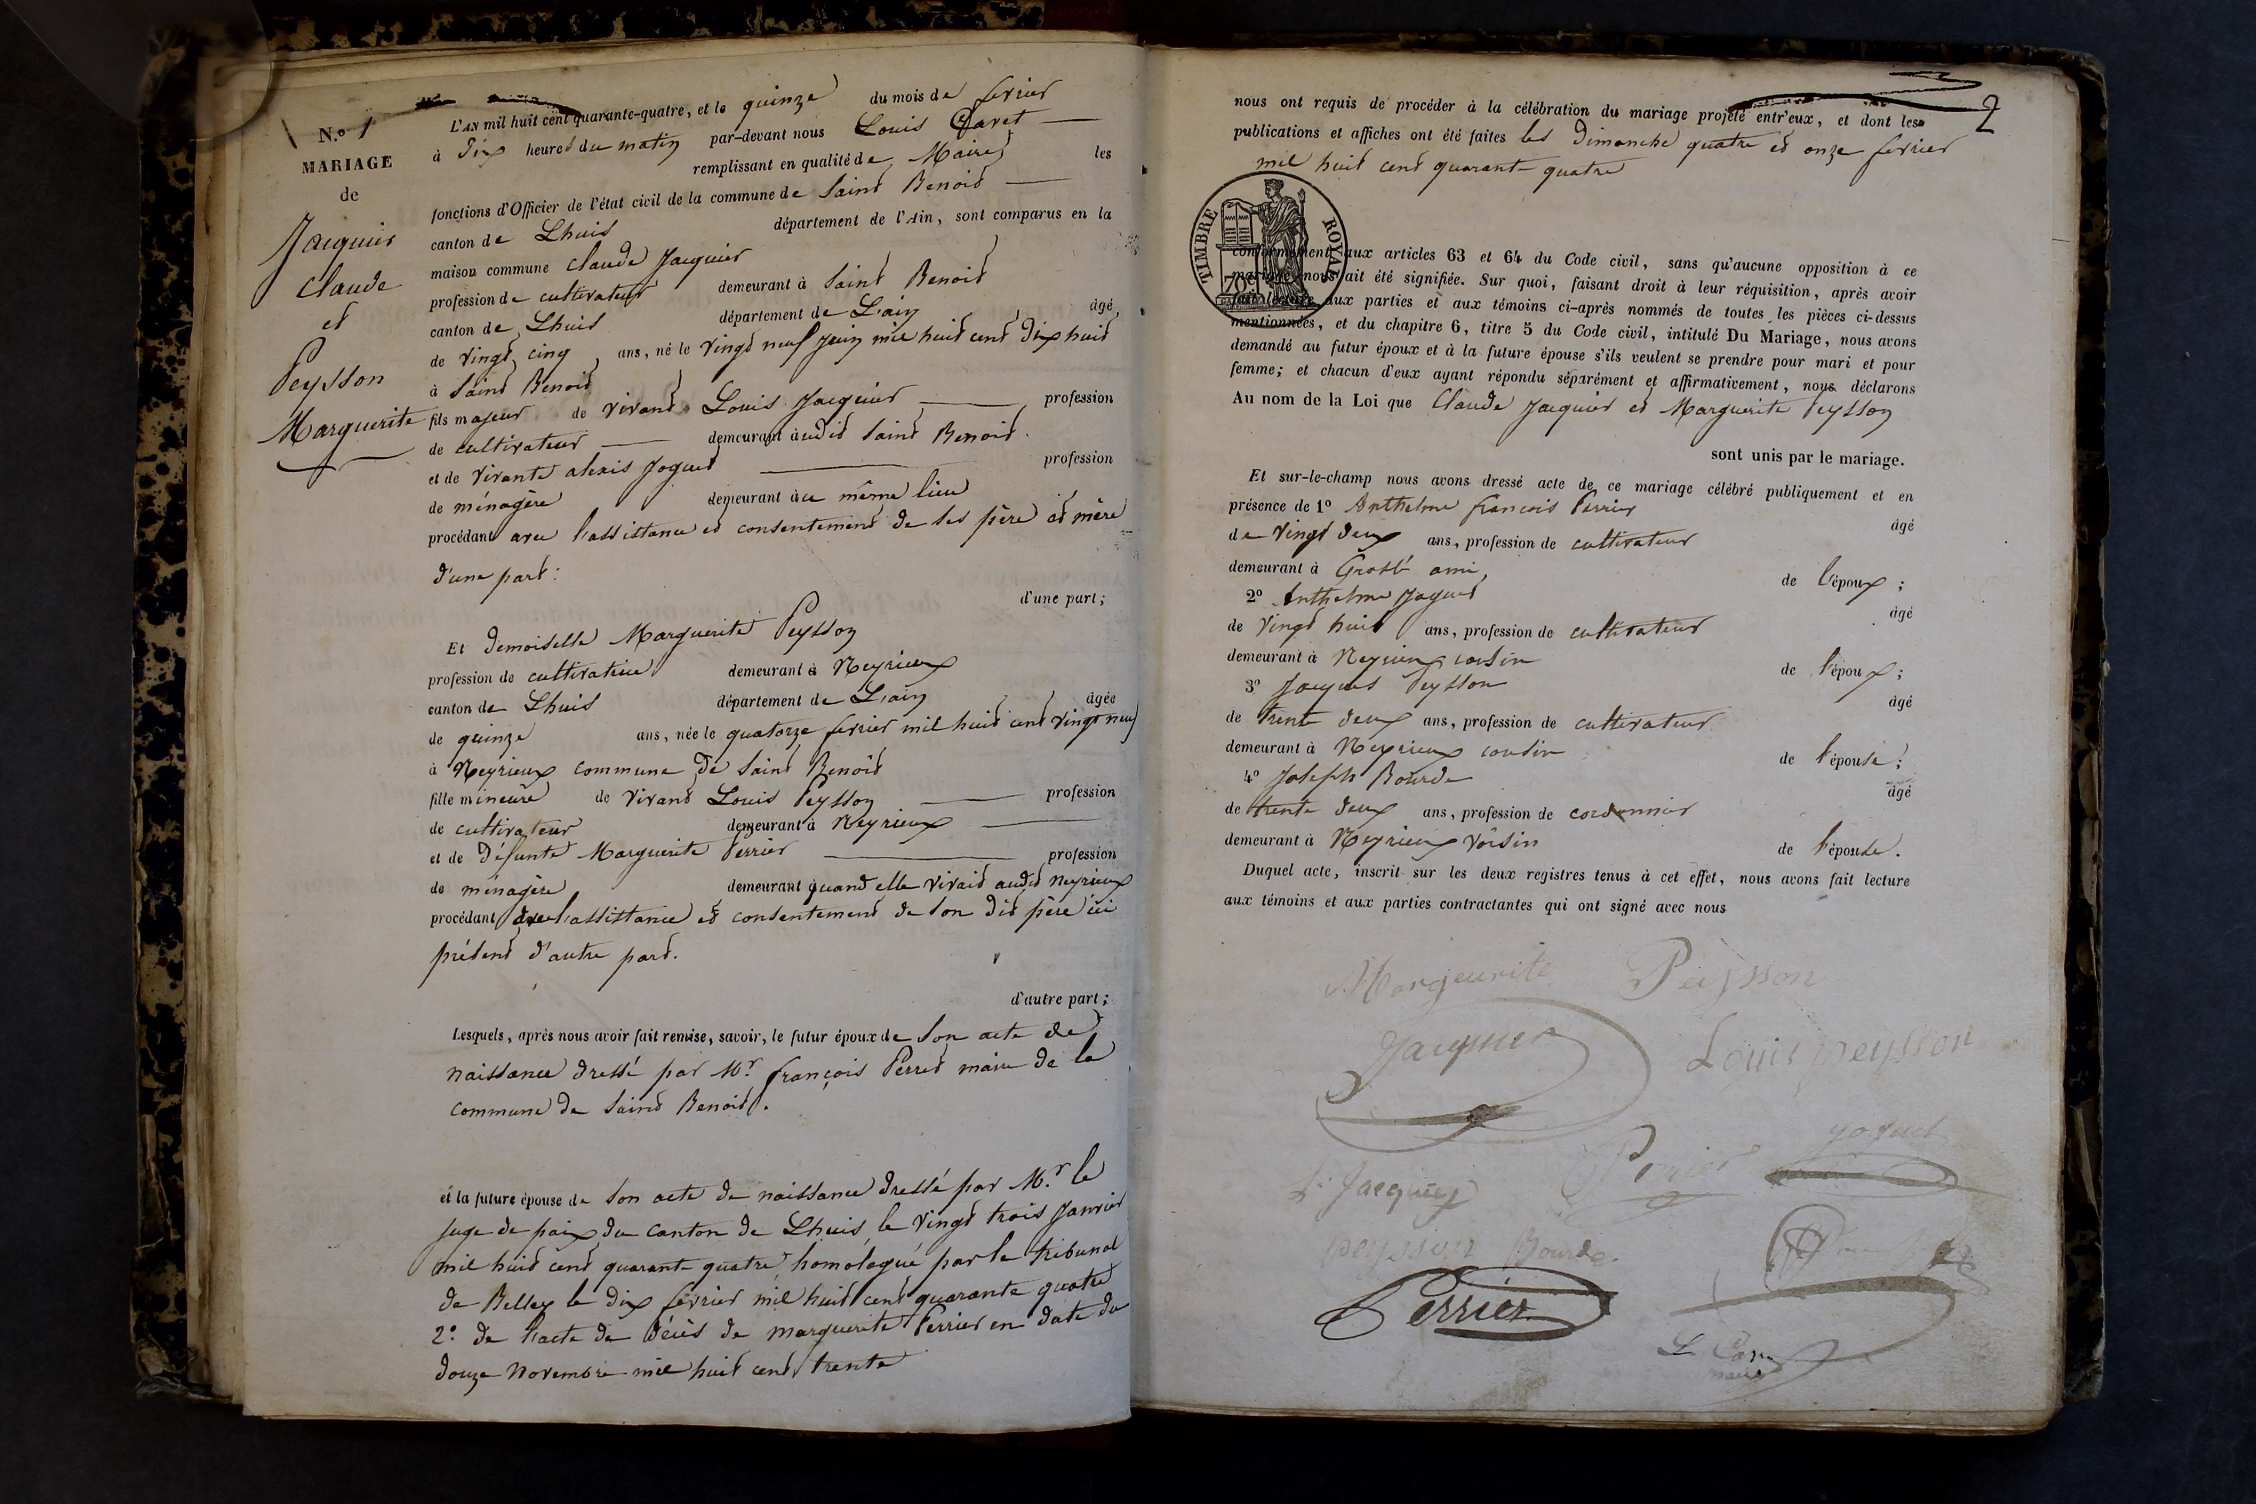 N.o 1
MARIAGE
de
Jacquier
Claude
et
Peysson
Marguerite
L'AN mil huit cent quarante-quatre, et le quinze du mois de fevrier
à Dix heures du matin par-devant nous Louis Caret
remplissant en qualité de Maire les
fonctions d'Officier de l'état civil de la commune de Saint Benoit
canton de Lhuis département de l'Ain, sont comparus en la
maison commune Claude Jacquier
profession de cultivateur demeurant à Saint Benoit
canton de Lhuis département de L'ain âgé
de vingt cinq ans, né le vingt neuf Juin mil huit cent dix huit
à Saint Benoit
fils majeur de vivant Louis Jacquier profession
de cultivateur demeurant à udit Saint Benoit.
et de vivante alexis Joguet profession
de ménagère demeurant à ce même lieu
procédant avec l'assistance et consentement de ses père et mère
d'une part:
d'une part;
Et demoiselle Marguerite Peysson
profession de cultivatrice demeurant à Neyrieux
canton de Lhuis département de L'ain âgée
de quinze ans, née le quatorze fevrier mil huit cent vingt neuf
à Neyrieux commune de Saint Benoit
fille mineure de vivant Louis Peysson profession
de cultivateur demeurant à Neyrieux
et de défunte Marguerite Perrier profession
de ménagère demeurant quand elle vivait audit Neyrieux
procédant avec l'assistance et consentement de son dit père ici
présent d'autre part.
d'autre part;
Lesquels, après nous avoir fait remise, savoir, le futur époux de son acte de
naissance dressé par Mr. françois Perret maire de la
commune de Saint Benoit.
et la future épouse de son acte de naissance dressé par Mr. le
juge de paix du canton de Lhuis, le vingt trois Janvier
mil huit cent quarante quatre homologué par le tribunal
de Belley le dix fevrier mil huit cent quarante quatre
2o. de l'acte de décès de marguerite Perrier en date du
douze Novembre mil huit cent trente
2
nous ont requis de procéder à la célébration du mariage projeté entr'eux, et dont les
publications et affiches ont été faites les dimanche quatre et onze fevrier
mil huit cent quarante quatre
TIMBRE ROYAL
70c
conformément aux articles 63 et 64 du Code civil, sans qu'aucune opposition à ce
mariage nous ait été signifiée. Sur quoi, faisant droit à leur réquisition, après avoir
fait lecture aux parties et aux témoins ci-après nommés de toutes les pièces ci-dessus
mentionnées, et du chapitre 6, titre 5 du Code civil, intitulé Du Mariage, nous avons
demandé au futur époux et à la future épouse s'ils veulent se prendre pour mari et pour
femme; et chacun d'eux ayant répondu séparément et affirmativement, nous déclarons
Au nom de la Loi que Claude Jacquier et Marguerite Peysson
sont unis par le mariage.
Et sur-le-champ nous avons dressé acte de ce mariage célébré publiquement et en
présence de 1o Anthelme francois Perrier
âgé
de vingt deux ans, profession de cultivateur
demeurant à Groslé ami, de l'époux;
2o Anthelme Joguet âgé
de vingt huit ans, profession de cultivateur
demeurant à Neyrieux cousin de l'époux;
3o Jacques Peysson âgé
de trente deux ans, profession de cultivateur
demeurant à Neyrieux cousin de l'épouse;
4o Joseph Bourde âgé
de trente deux ans, profession de cordonnier
demeurant à Neyrieux voisin de l'épouse.
Duquel acte, inscrit sur les deux registres tenus à cet effet, nous avons fait lecture
aux témoins et aux parties contractantes qui ont signé avec nous
Margeurite Peysson
Jacquier Louis peysson
Joguet
L. Jacquier Perrier
peysson Bourde.
Perrier